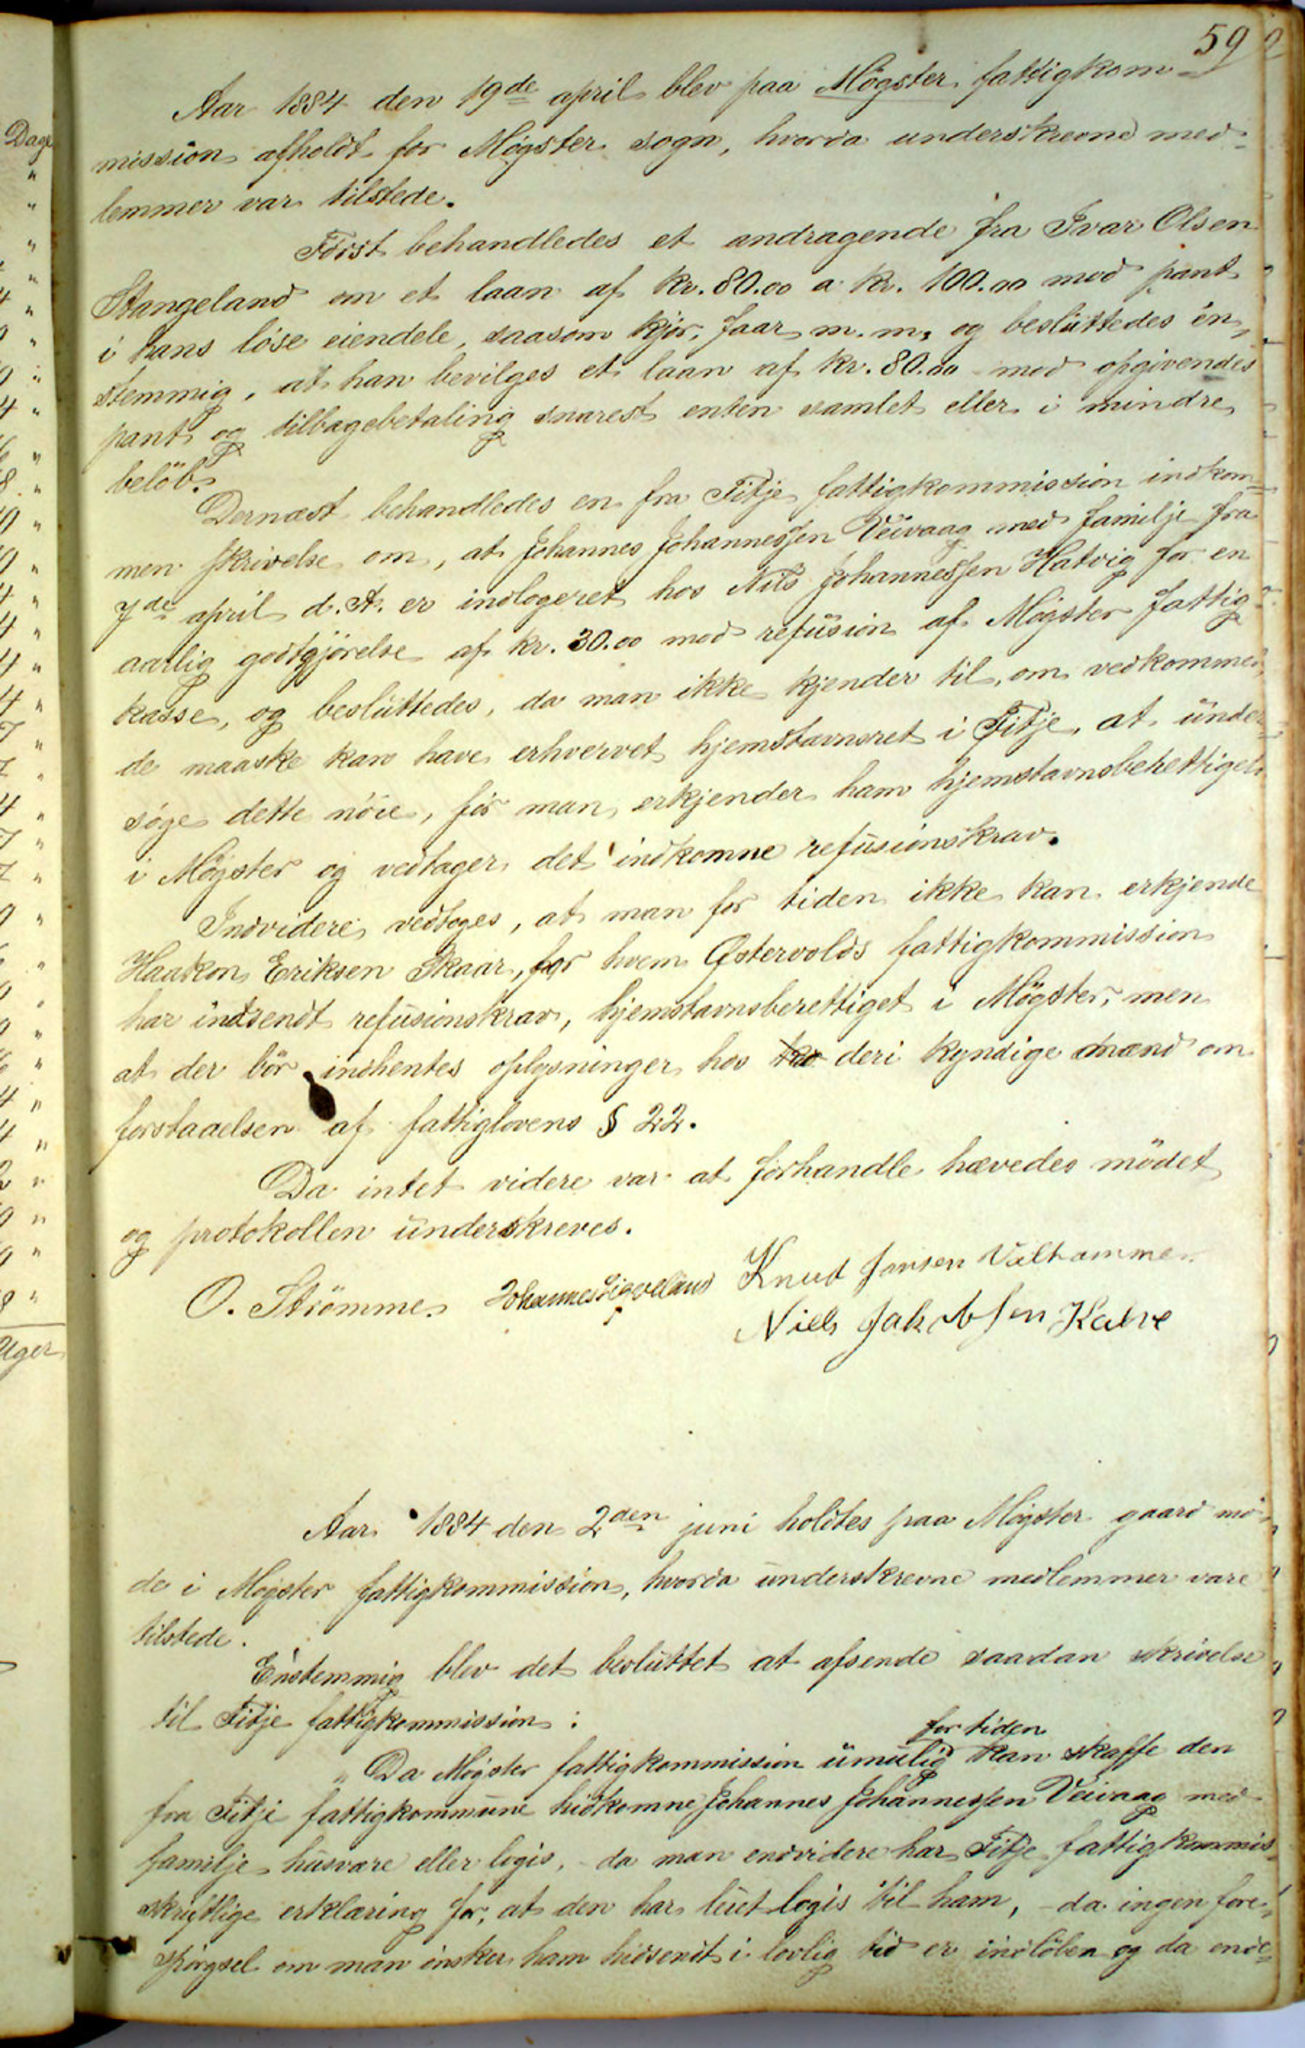 59
Aar 1884 den 19de april blev paa Møgster fattigkom-
mission afholdt for Møgster sogn, hvorda underskrevne med-
lemmer var tilstede.
Først behandledes et andragende fra Ivar Olsen
Stangeland om et laan af kr. 80.00 a kr. 100.00 mod pant
i hans løse eiendele, saasom kjør, faar m. m. og besluttedes en-
stemmig, at han bevilges et laan af kr. 80.00 mod opgivendes
pant og tilbagebetaling snarest enten samlet eller i mindre
beløb.
Dernæst behandledes en fra Fitje fattigkommission indkom-
men skrivelse om, at Johannes Johannessen Veivaag med familje fra
7de april d. A. er indlogeret hos Nils Johannessen Hatvig for en
aarlig godtgjørelse af kr. 30.00 mod refusion af Møgster fattig-
kasse, og besluttedes, da man ikke kjender til, om vedkommen-
de maaske kan have erhvervet hjemstavnsret i Fitje, at under-
søge dette nøie, før man erkjender ham hjemstavnsbehettiget
i Møgster og vedtager det indkomne refusionskrav.
Indvidere vedtoges, at man for tiden ikke kan erkjende
Haakon Eriksen Skaar, for hvem Østervolds fattigkommission
har indsendt refusionskrav, hjemstavnsberettiget i Møgster, men
at der bør indhentes oplysninger hos deri kyndige mænd om
forstaaelsen af fattiglovens § 22.
Da intet videre var at forhandle hævedes mødet
og protokollen underskreves.
O. Strømme. Johannes Knud Jansen
Niels Jakobsen Kalve
Aar 1884 den 2den juni holdtes paa Møgster gaard mø-
de i Møgster fattigkommission, hvorda underskrevne medlemmer vare
tilstede.
Enstemmig blev det besluttet at afsende saadan skrivelse
til Fitje fattigkommission:
for tiden
„Da Møgster fattigkommission umulig kan skaffe den
fra Fitje fattigkommune hidkomne Johannes Johannessen Veivaag med
familje husvære eller logis, - da man endvidere har Fitje fattigkommis-
skriftlige erklæring for, at den har leiet logis til ham, - da ingen fore-
spørgsel om man ønsker ham hidsendt i lovlig tid er indløben og da ende-
Dage
Uger